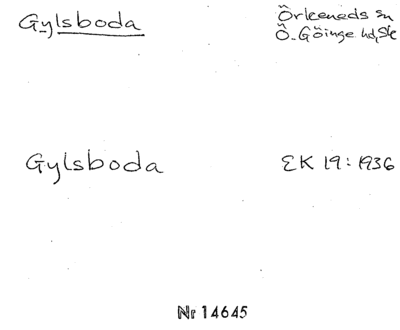 Gylsboda
Örkeneds sn
Ö. Göinge hd, Sk
Gylsboda
EK 19:1936
Nr 14645